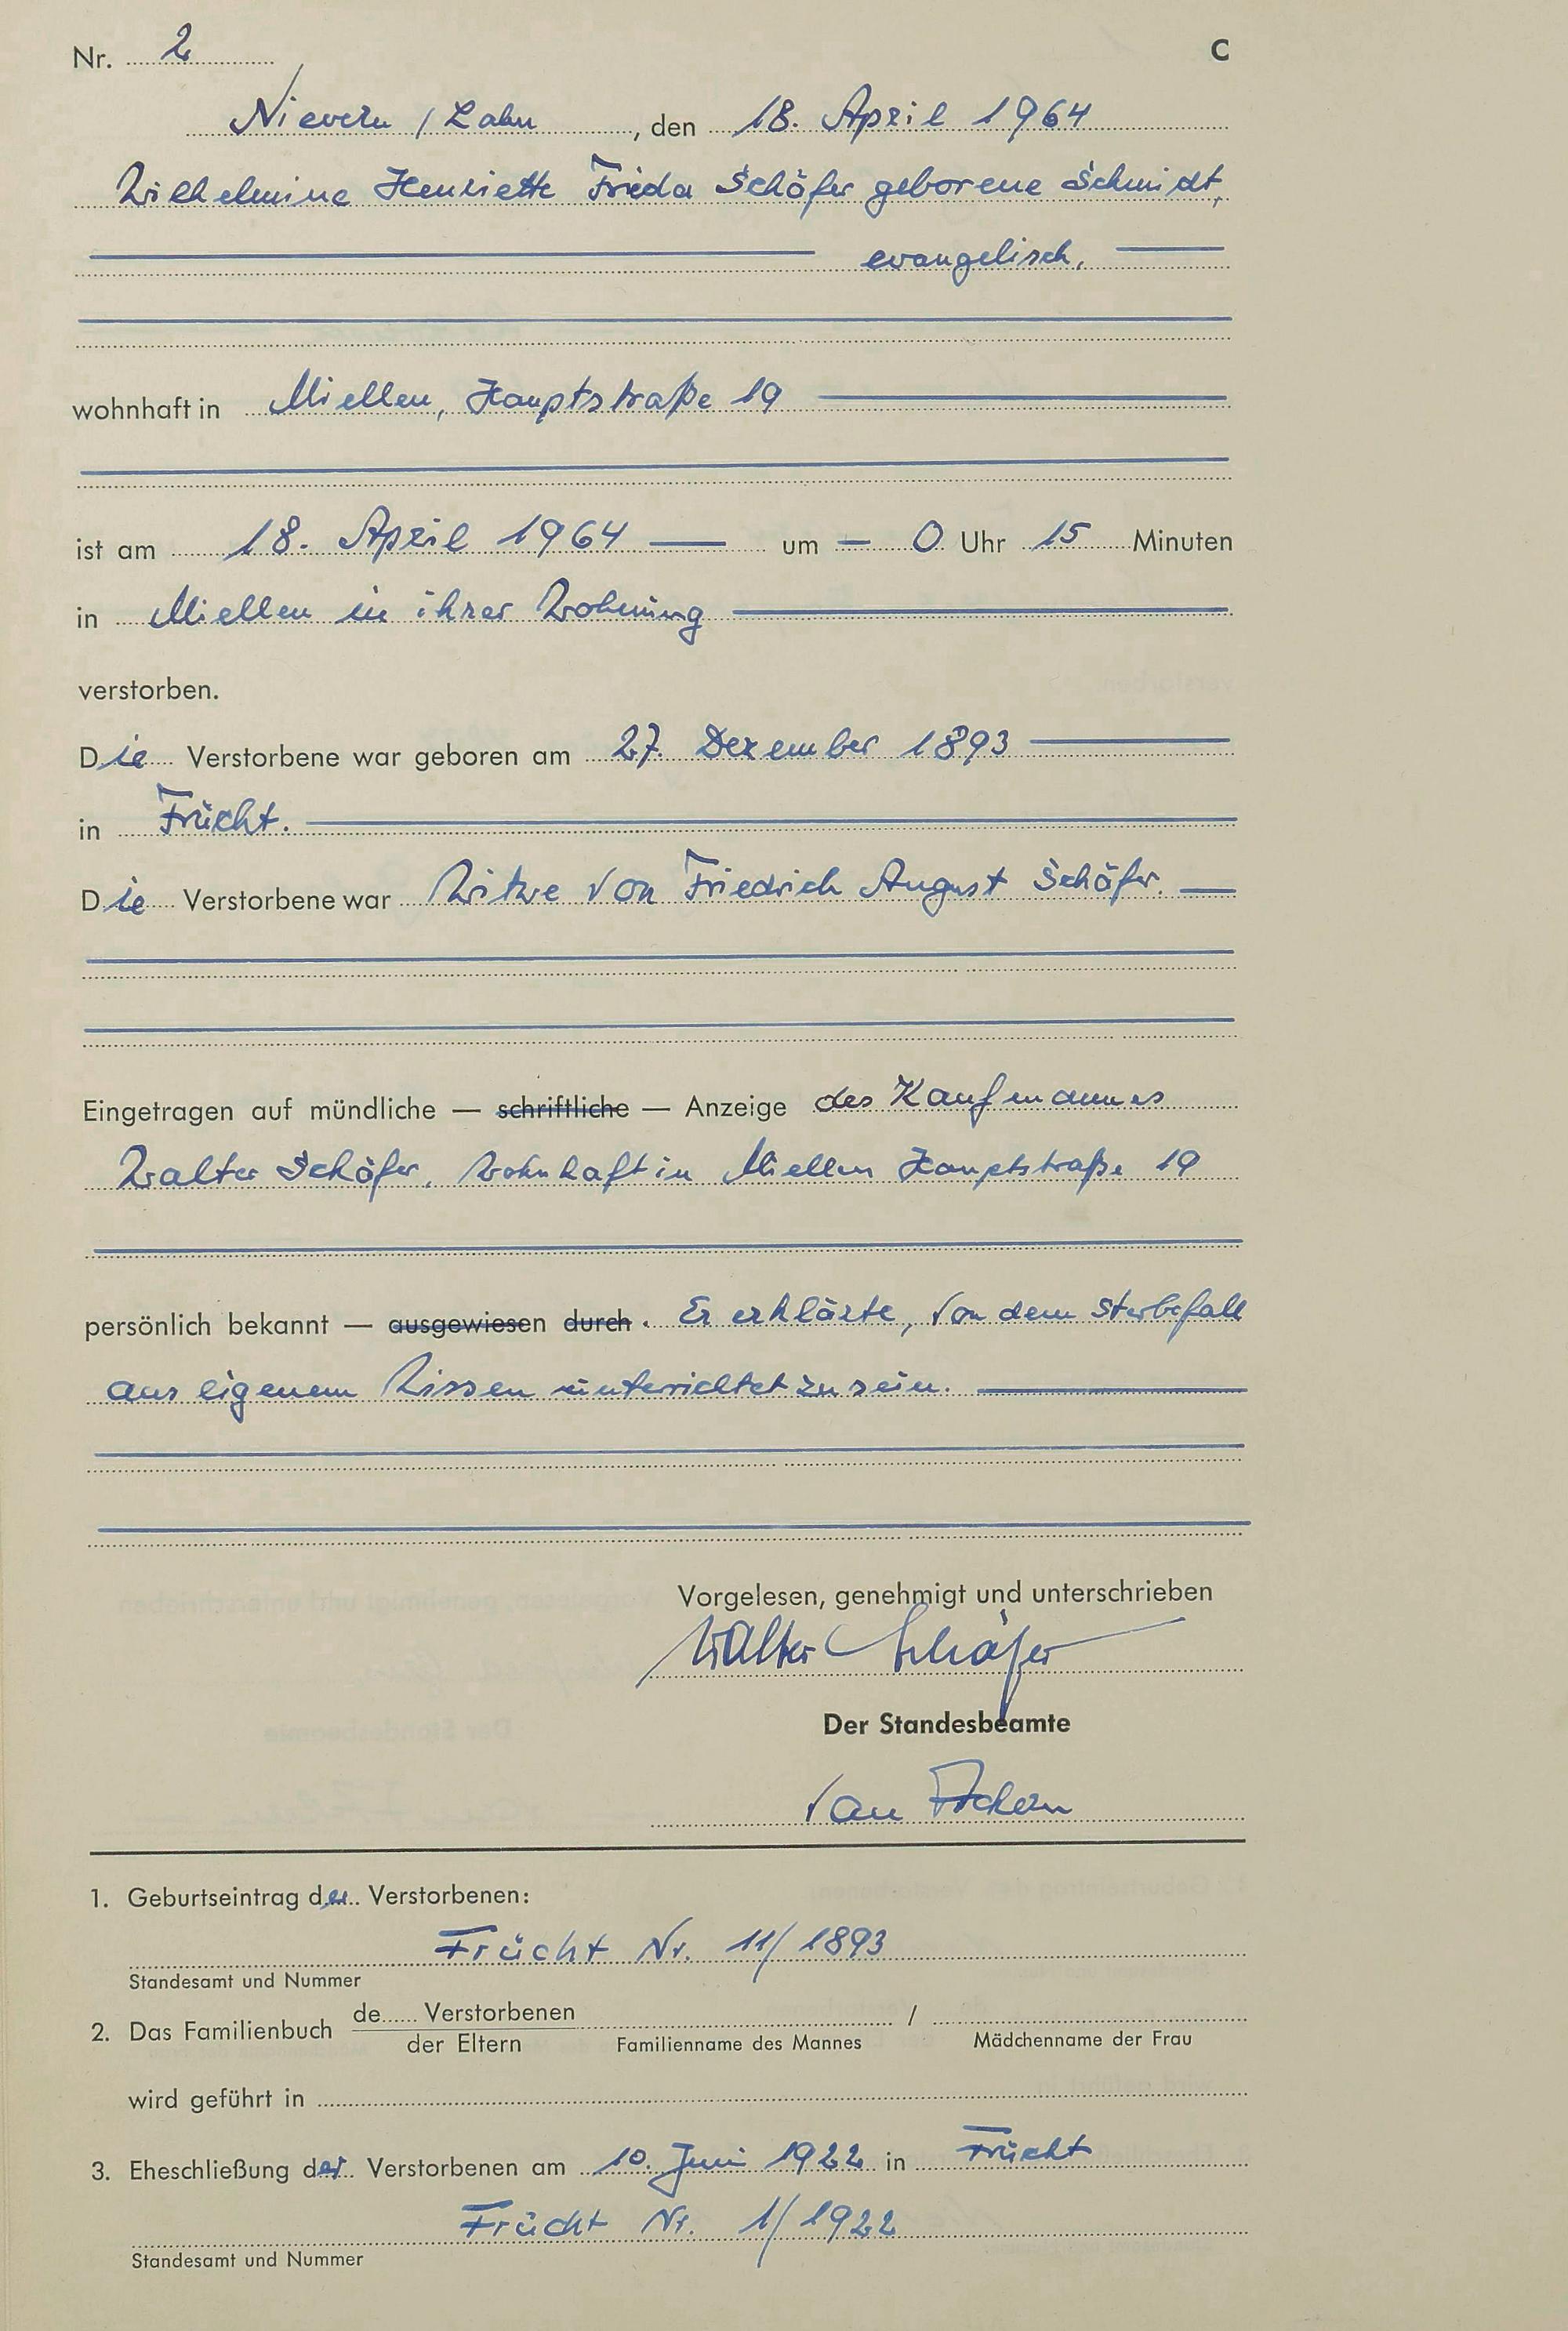 Nr. 2 C
Nievern / Lahn, den 18. April 1964
Wilhelmine Henriette Frieda Schäfer geborene Schmidt,
evangelisch,
wohnhaft in Miellen, Hauptstraße 19
ist am 18. April 1964 — um — 0 Uhr 15 Minuten
in Miellen in ihrer Wohnung
verstorben.
Die Verstorbene war geboren am 27. Dezember 1893
in Frücht.
Die Verstorbene war Witwe von Friedrich August Schäfer.
Eingetragen auf mündliche — schriftliche — Anzeige des Kaufmannes
Walter Schäfer, wohnhaft in Miellen Hauptstraße 19
persönlich bekannt — ausgewiesen durch. Er erklärte, von dem Sterbefall
aus eigenem Wissen unterrichtet zu sein.
Vorgelesen, genehmigt und unterschrieben
Walter Schäfer
Der Standesbeamte
van
1. Geburtseintrag der Verstorbenen:
Frücht Nr. 11/1893
Standesamt und Nummer
2. Das Familienbuch de...... Verstorbenen /
der Eltern Familienname des Mannes Mädchenname der Frau
wird geführt in
3. Eheschließung der Verstorbenen am 10. Juni 1922 in Frücht
Frücht Nr. 1/1922
Standesamt und Nummer